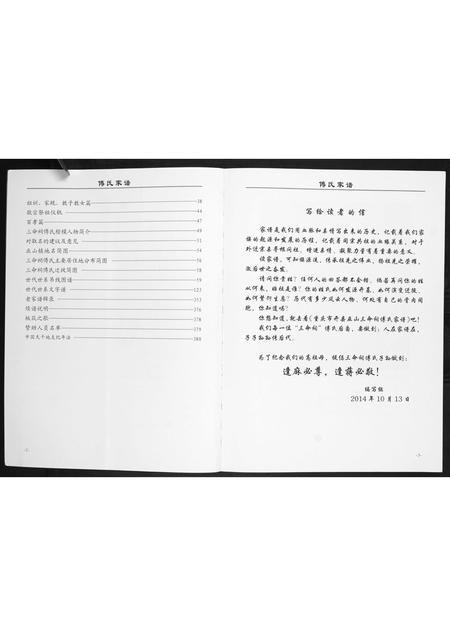 傅氏家谱
祖训、家规、教子教女篇 38
敬宗祭祖仪轨 44
百孝篇 47
三命祠傅氏楷模人物简介 49
对取名的建议及意见 51
巫山镇地名简图 54
三命祠傅氏主要居住地分布简图 56
三命祠傅氏迁徙简图 58
世代世系吊线图谱 59
世代世系文字谱 123
老家谱辑录 353
续谱说明 376
核校之歌 378
赞助人员名单 379
中国天干地支纪年法 380
-2-
傅氏家谱
写给读者的信
家谱是我们用血脉和真情写出来的历史，记载着我们家
族的起源和发展的历程，记载着同宗共祖的血缘关系，对于
外迁宗亲寻根问祖、增进亲情、凝聚力量有着重要的意义。
读家谱，可知根源流，传承祖先之伟业，扬祖先之荣耀，
激后世之奋发。
请问你贵姓？任何人的回答都不会错，倘若再问你的姓
从何来，始祖是谁？你的姓氏如何发源开基、如何演变迁徙、
如何繁衍生息？历代有多少风云人物、何处有自己的骨肉同
胞，你知道吗？
你想知道，就去看《重庆市开县巫山三命祠傅氏家谱》吧！
我们每一位“三命祠”傅氏后裔，要做到：人在家谱在，
子子孙孙传后代。
为了纪念我们的高祖母，提倡三命祠傅氏子孙做到：
逢麻必尊，逢蒋必敬！
编写组
2014 年 10 月 13 日
-3-